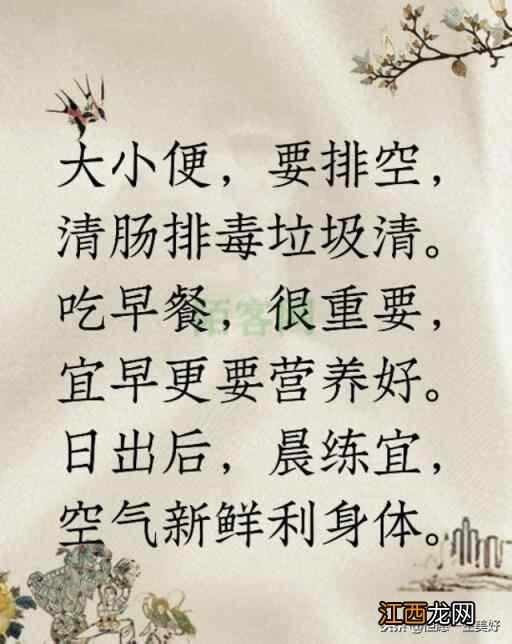 大小便，要排空，
清肠排毒垃圾清。
吃早餐，很重要，
宜早更要营养好。
日出后，晨练宜，
空气新鲜利身体。
江西龙网